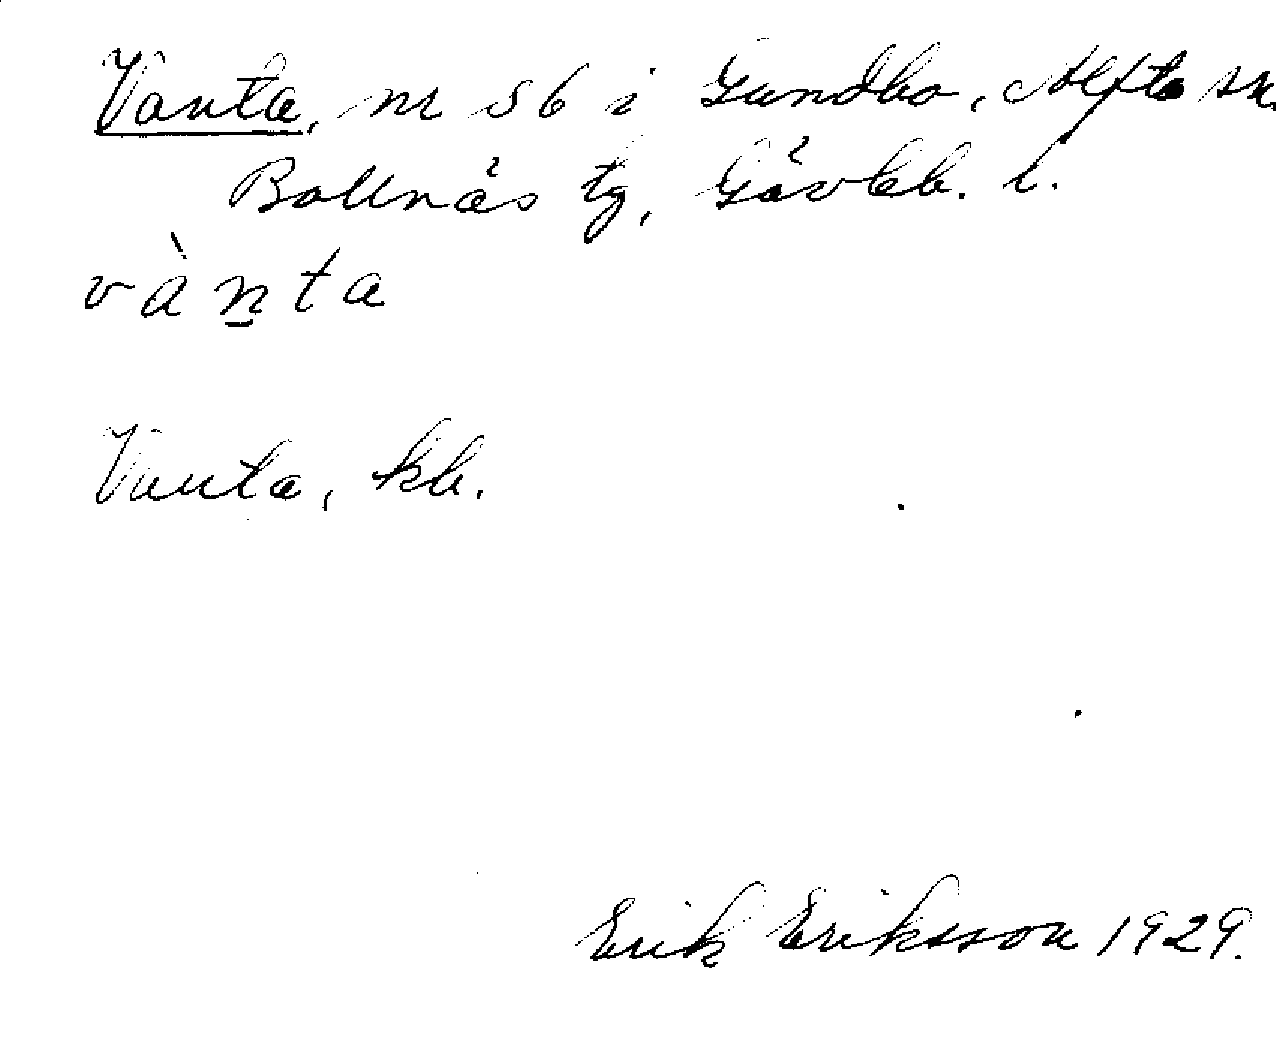 Vanta, nr 56 i Gundbo, Alfta sn.
Bollnäs tg, Gävleb. l.
vàn̲ta
Vanta, kb.
Erik Eriksson 1929.